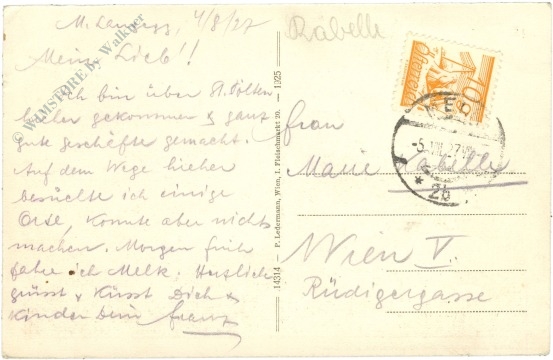 4/8/27
Mein Lieb!!
Ich bin über St. Pölten
hierher gekommen & ganz
gute Geschäfte gemacht.
Auf dem Wege hieher
besuchte ich einige
Orte, konnte aber nichts
machen. Morgen früh
fahre ich Melk. Herzlich
grüsst & küsst Dich &
Kinder Dein Franz
© W-IMSTORE by Walkner
14314 - P. Ledermann, Wien, I. Fleischmarkt 20. - 1925
Rabelle
Österreich
Frau
Marie
Wien V.
Rüdigergasse
* 2b